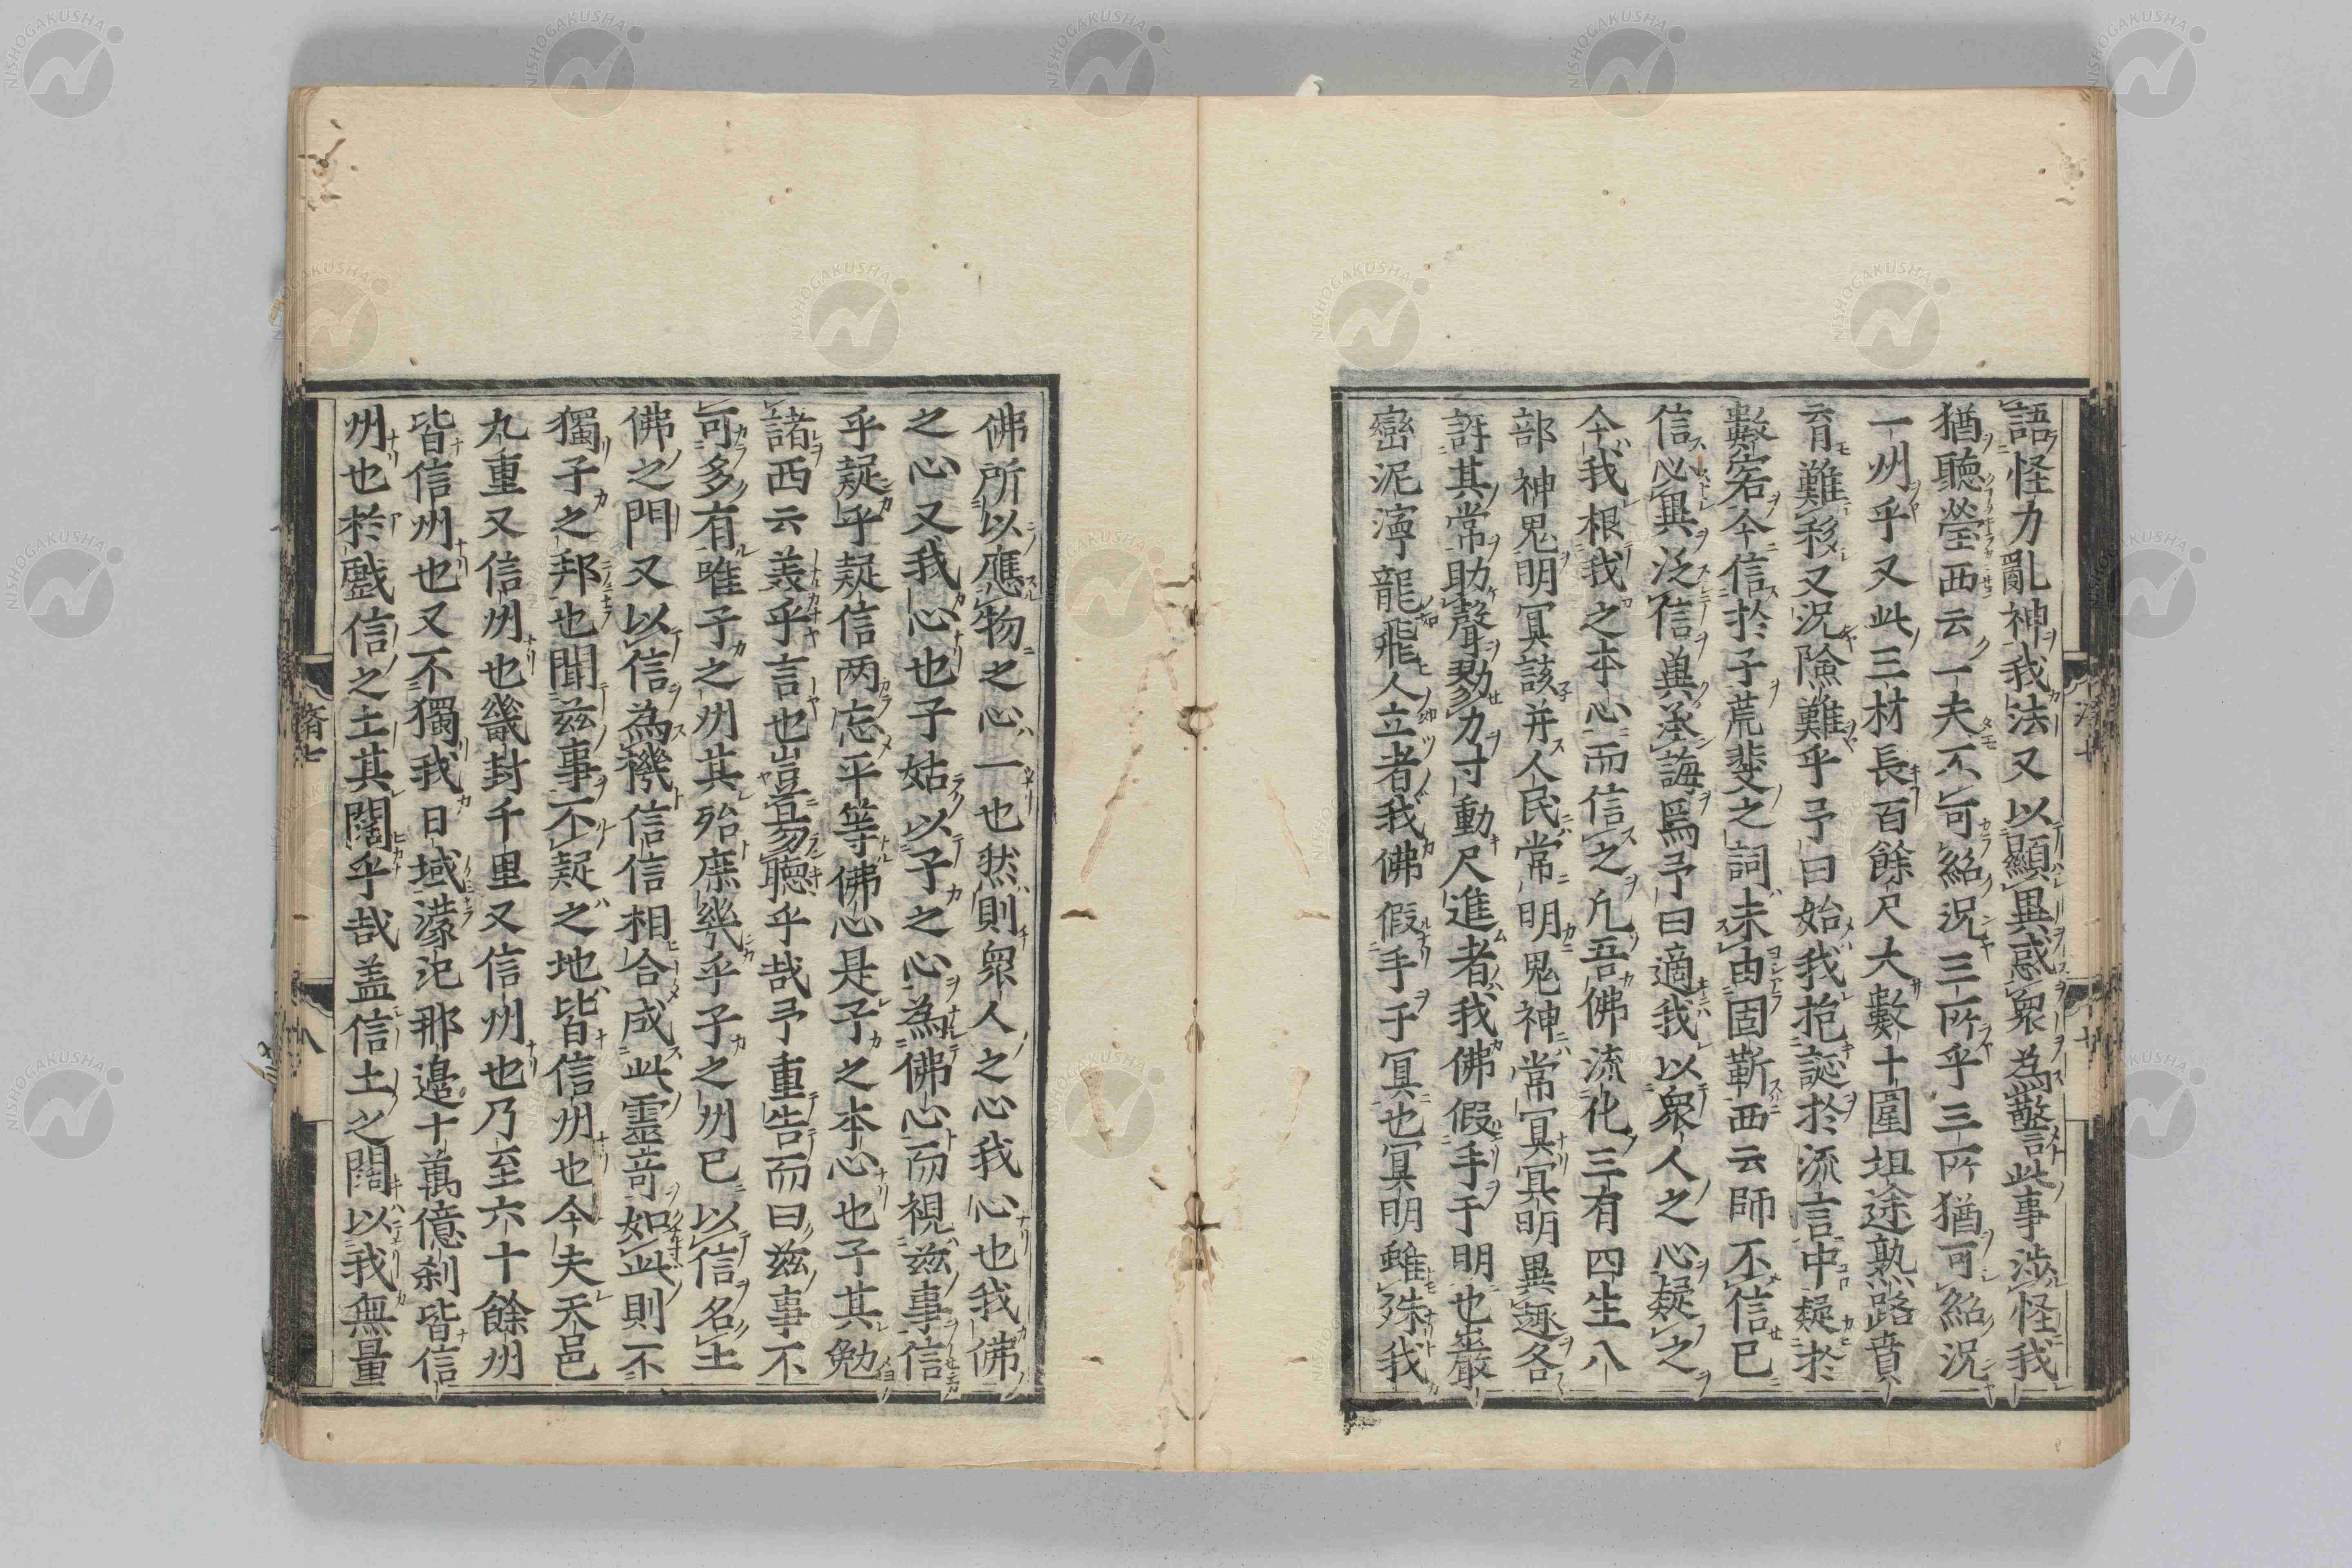 語怪力亂神我法又以顯異惑衆為警訁此事渉怪我
猶聽瑩西云一夫不可紿況三所乎三所猶可紿況
一州乎又此三材長百餘尺大數十圍坦途熟路賁
育難移又況險難乎予曰始我抱誕於流言中疑於
數宕今信於子荒斐之詞未由固靳西云師不信已
信必與泛信與湮誨焉予曰適我以衆人之心疑之
今我根我之本心而信之凢吾佛流化三有四生八
部神鬼明冥該并人民常明鬼神常冥冥明異趣各
許其常助聲勠力寸動尺進者我佛假手于明也巖
巒泥濘龍飛人立者我佛假手于冥也冥明雖殊我
佛所以應物之心一也然則衆人之心我心也我佛
之心又我心也子姑以子之心為佛心而視玆事信
乎疑乎疑信两忘平等佛心是子之本心也子其勉
諸西云羙乎言也豈易聽乎哉予重告而曰玆事不
可多有唯子之州其殆庶幾乎子之州已以信名土
佛之門又以信為機信信相合成此靈竒如此則不
獨子之邦也聞玆事不疑之地皆信州也今夫天邑
九重又信州也畿封千里又信州也乃至六十餘州
皆信州也又不獨我日域濛汜那邉十萬億刹皆信
州也於戲信之土其闊乎哉盖信土之闊以我無量
八